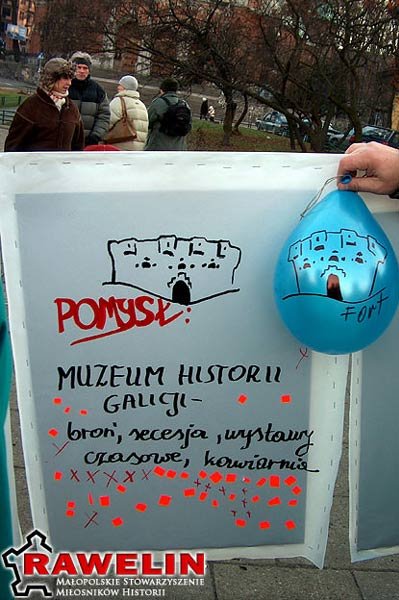 POMYSŁ:
FORT
MUZEUM HISTORII
GALICJI-
broń, secesja, wystawy
czasowe, kawiarnia
RAWELIN
MAŁOPOLSKIE STOWARZYSZENIE
MIŁOŚNIKÓW HISTORII